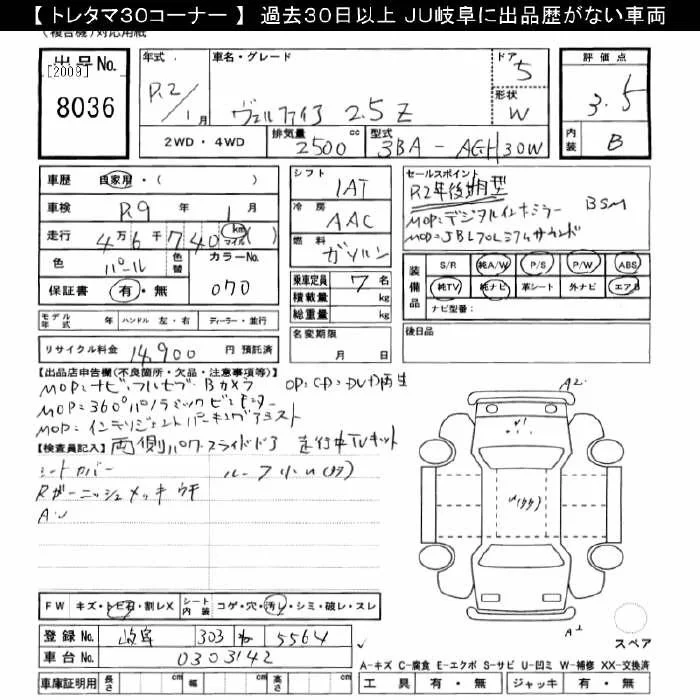 【 トレタマ30コーナー 】 過去30日以上 JU岐阜に出品歴がない車両
(複合機)対応用紙
出品No.
[2009]
8036
年式 R.2/1月
車名・グレード ヴェルファイア 2.5 Z
ドア 5
形状 W
2WD・4WD
排気量 2500 cc
型式 3BA - AGH30W
評価点 3.5
内装 B
車歴 自家用・( )
車検 R9 年 1 月
走行 4万6千740 km マイル ( )
色 パール 色替
カラーNo. 070
保証書 有・無
シフト IAT
冷房 AAC
燃料 ガソリン
乗車定員 7 名
積載量 kg
総重量 kg
セールスポイント
R2年後期型
MOP=デジタルインナーミラー BSM
MOP=JBLプレミアムサウンド
装備品
S/R 純A/W P/S P/W ABS
純TV 純ナビ 革シート 外ナビ エアB
ナビ型番:
モデル年式 年 ハンドル 左・右 ディーラー・並行
名変期限 月 日
後日品
リサイクル料金 14,900 円 預託済
【出品店申告欄(不良箇所・欠品・注意事項等)】
MOP=ナビ・フルセグ・Bカメラ OP=CD・DVD再生
MOP=360°パノラミックビューモニター
MOP=インテリジェントパーキングアシスト
【検査員記入】 両側パワースライドドア 走行中TVキット
シートカバー ルーフ小U(タタ)
Rガーニッシュメッキウキ
A・U
A2
U(タタ)
A1
FW キズ・トビ石・割レX
シート内装 コゲ・穴・汚レ・シミ・破レ・スレ
登録No. 岐阜 303 ね 5564
車台No. 0303142
車庫証明用 長さ cm 幅 cm 高さ cm
スペア
A-キズ C-腐食 E-エクボ S-サビ U-凹ミ W-補修 XX-交換済
工具 有・無 ジャッキ 有・無